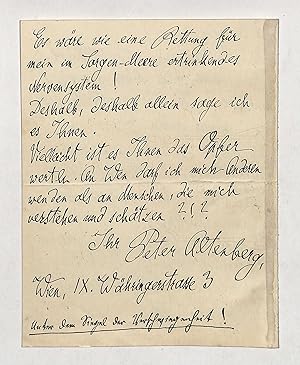 Es wäre wie eine Rettung für
mein im Sorgen-Meere ertrinkendes
Nervensystem!
Deshalb, deshalb allein sage ich
es Ihnen.
Vielleicht ist es Ihnen das Opfer
werth. An Wen darf ich mich Anderen
wenden als an Menschen, die mich
verstehen und schätzen ?!?
Ihr Peter Altenberg,
Wien, IX. Währingerstrasse 3
Unter dem Siegel der Verschwiegenheit!